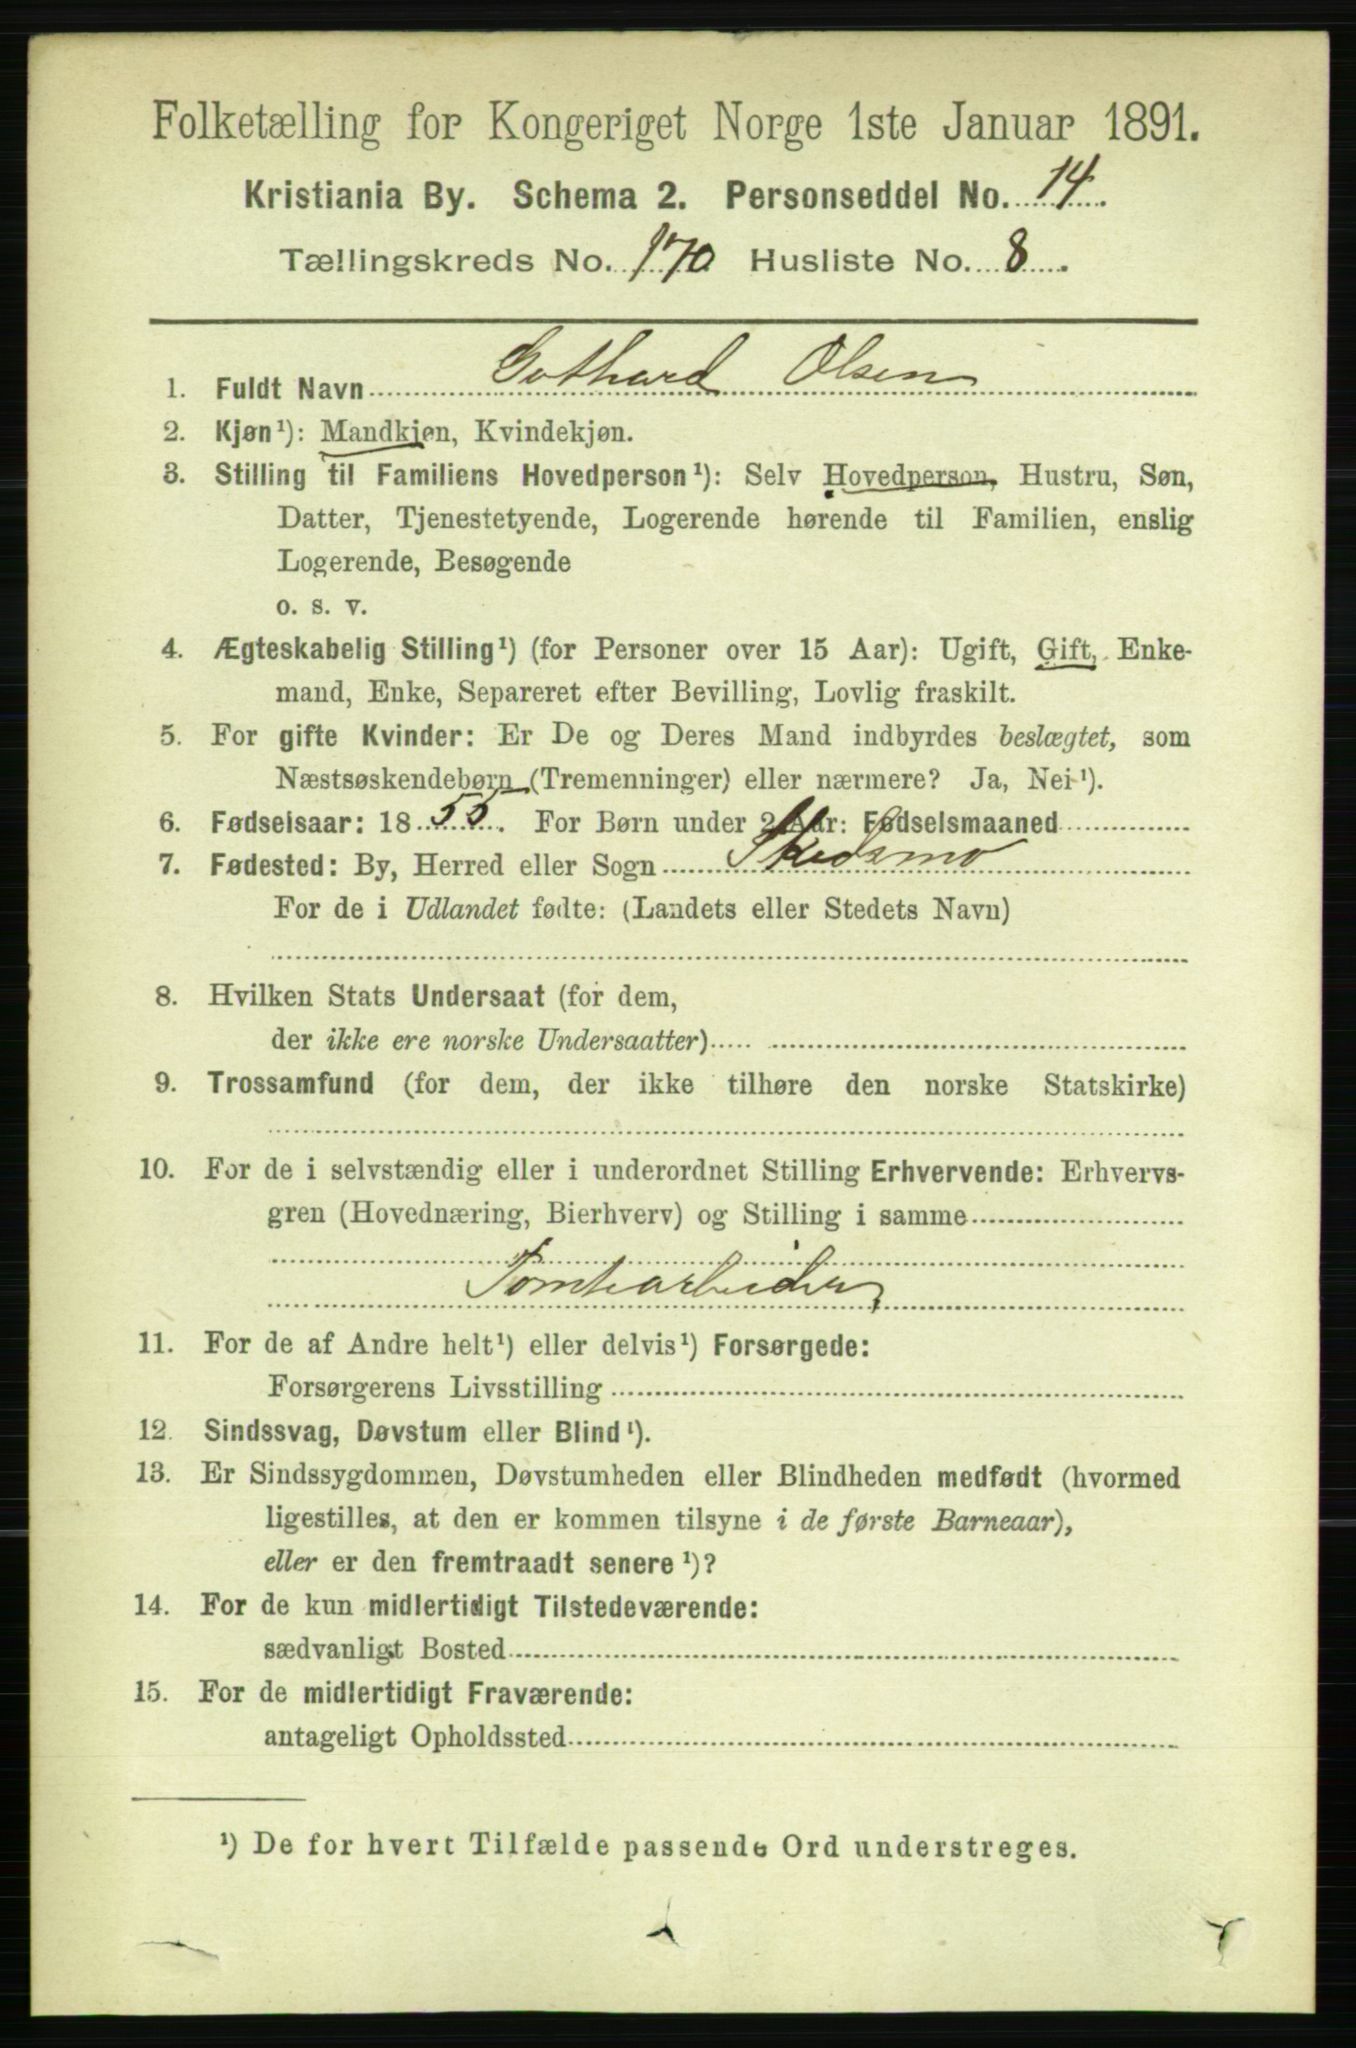 Folketælling for Kongeriget Norge 1ste Januar 1891.
Kristiania By. Schema 2. Personseddel No. 14.
Tællingskreds No. 170 Husliste No. 8.
1. Fuldt Navn Gothard Olsen
2. Kjøn¹): Mandkjøn, Kvindekjøn.
3. Stilling til Familiens Hovedperson¹): Selv Hovedperson, Hustru, Søn,
Datter, Tjenestetyende, Logerende hørende til Familien, enslig
Logerende, Besøgende
o. s. v.
4. Ægteskabelig Stilling¹) (for Personer over 15 Aar): Ugift, Gift, Enke-
mand, Enke, Separeret efter Bevilling, Lovlig fraskilt.
5. For gifte Kvinder: Er De og Deres Mand indbyrdes beslægtet, som
Næstsøskendebørn (Tremenninger) eller nærmere? Ja, Nei¹).
6. Fødselsaar: 1855. For Børn under 2 Aar: Fødselsmaaned
7. Fødested: By, Herred eller Sogn Skedsmo
For de i Udlandet fødte: (Landets eller Stedets Navn)
8. Hvilken Stats Undersaat (for dem,
der ikke ere norske Undersaatter)
9. Trossamfund (for dem, der ikke tilhøre den norske Statskirke)
10. For de i selvstændig eller i underordnet Stilling Erhvervende: Erhvervs-
gren (Hovednæring, Bierhverv) og Stilling i samme
Tomtearbeider
11. For de af Andre helt¹) eller delvis¹) Forsørgede:
Forsørgerens Livsstilling
12. Sindssvag, Døvstum eller Blind¹).
13. Er Sindssygdommen, Døvstumheden eller Blindheden medfødt (hvormed
ligestilles, at den er kommen tilsyne i de første Barneaar),
eller er den fremtraadt senere¹)?
14. For de kun midlertidigt Tilstedeværende:
sædvanligt Bosted
15. For de midlertidigt Fraværende:
antageligt Opholdssted
¹) De for hvert Tilfælde passende Ord understreges.